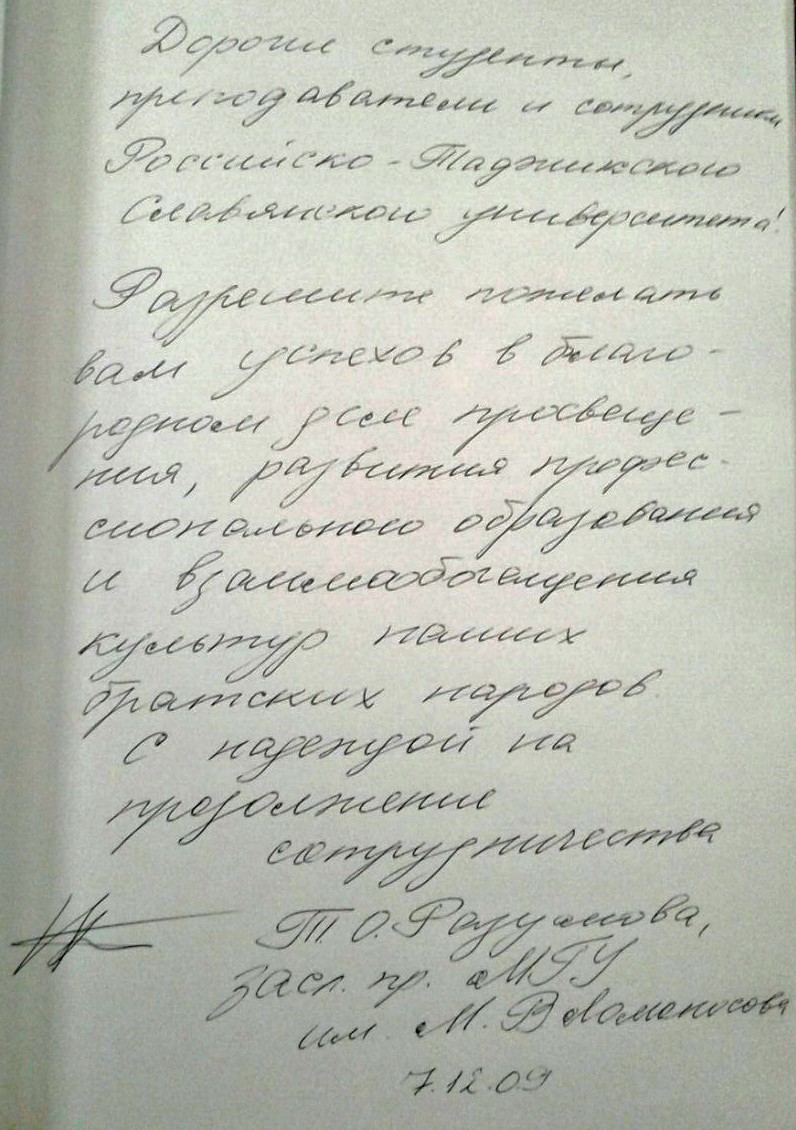 Дорогие студенты,
преподаватели и сотрудники
Российско-Таджикского
Славянского университета!
Разрешите пожелать
вам успехов в благо-
родном деле просвеще-
ния, развития профес-
сионального образования
и взаимообогащения
культур наших
братских народов.
С надеждой на
продолжение
сотрудничества
Т.О. Разумова,
засл. пр. МГУ
им. М.В Ломоносова
7.12.09